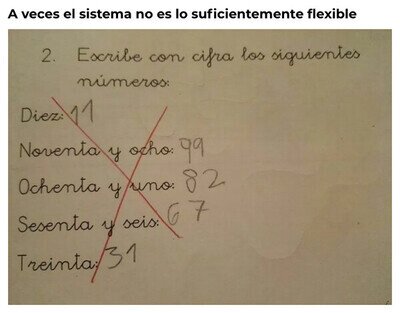 A veces el sistema no es lo suficientemente flexible
2. Escribe con cifra los siguientes
números:
Diez: 11
Noventa y ocho: 99
Ochenta y uno: 82
Sesenta y seis: 67
Treinta: 31